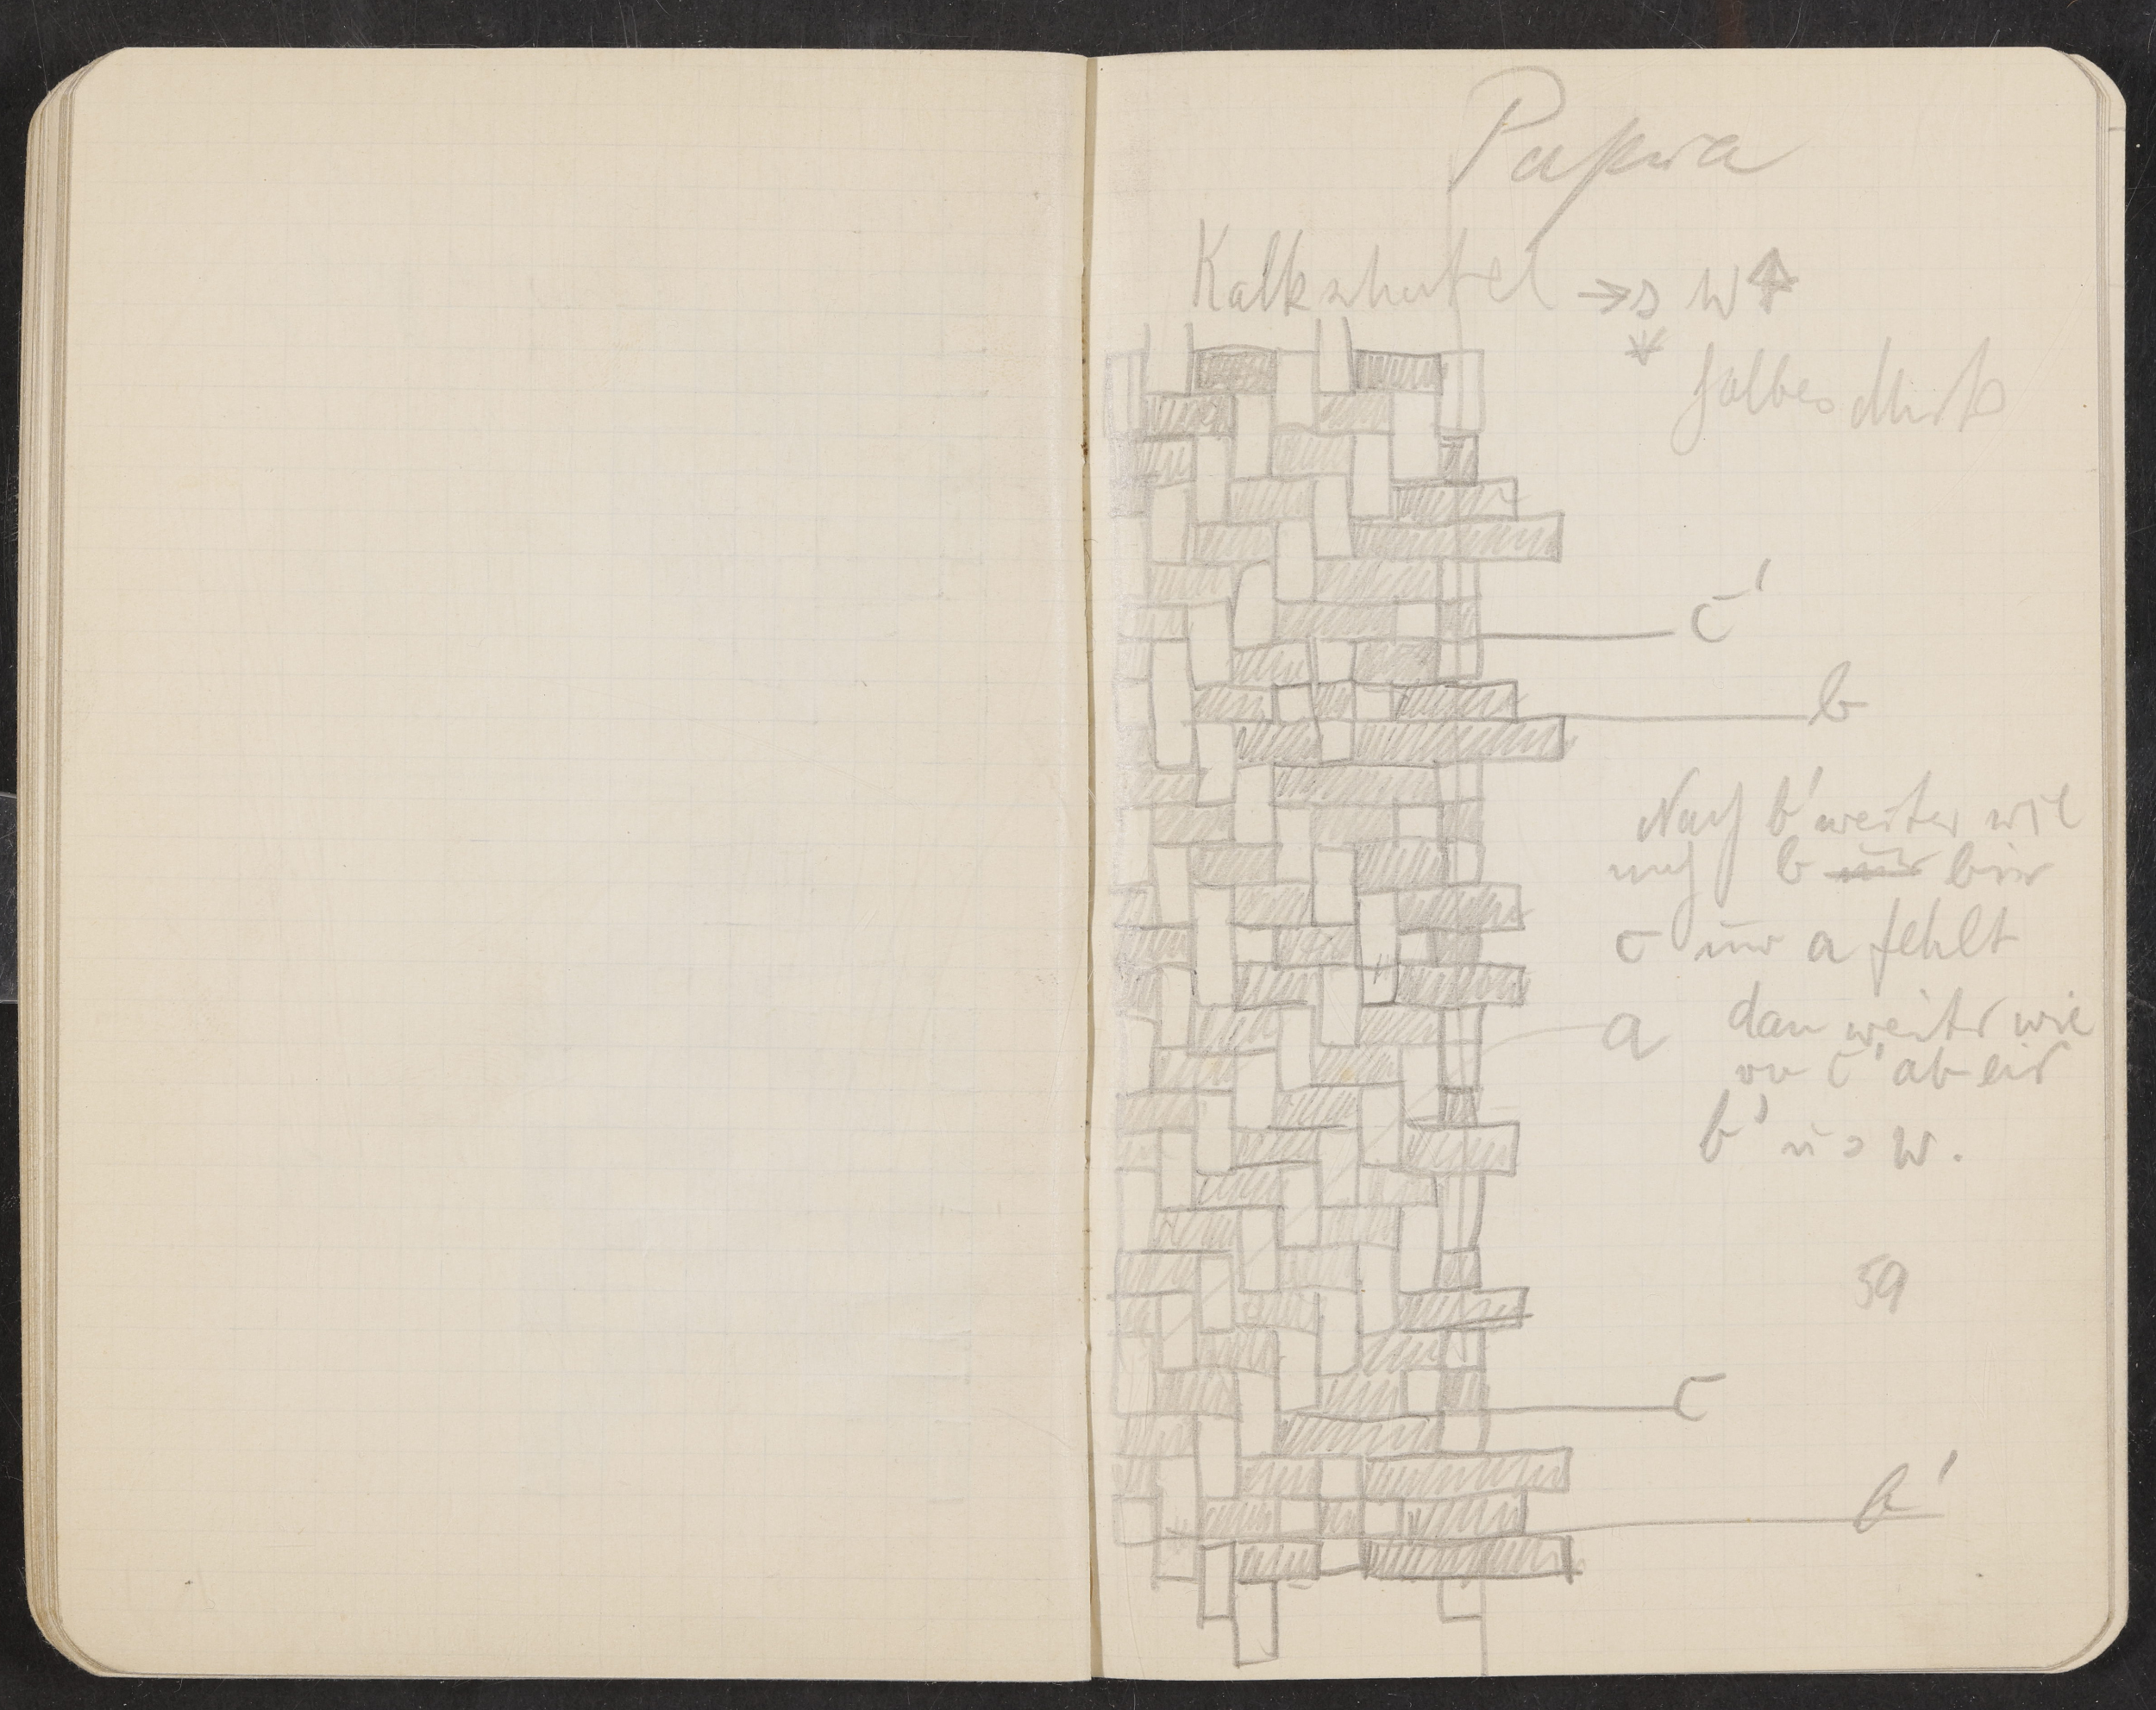 Papua
Kalkspatel → s W ↑
halbes Must
c'
b
Nach b' weiter wie
nach b bis
c nur a fehlt
a
dan weiter wie
von c' ab bis
b' u s w.
59
c
b'